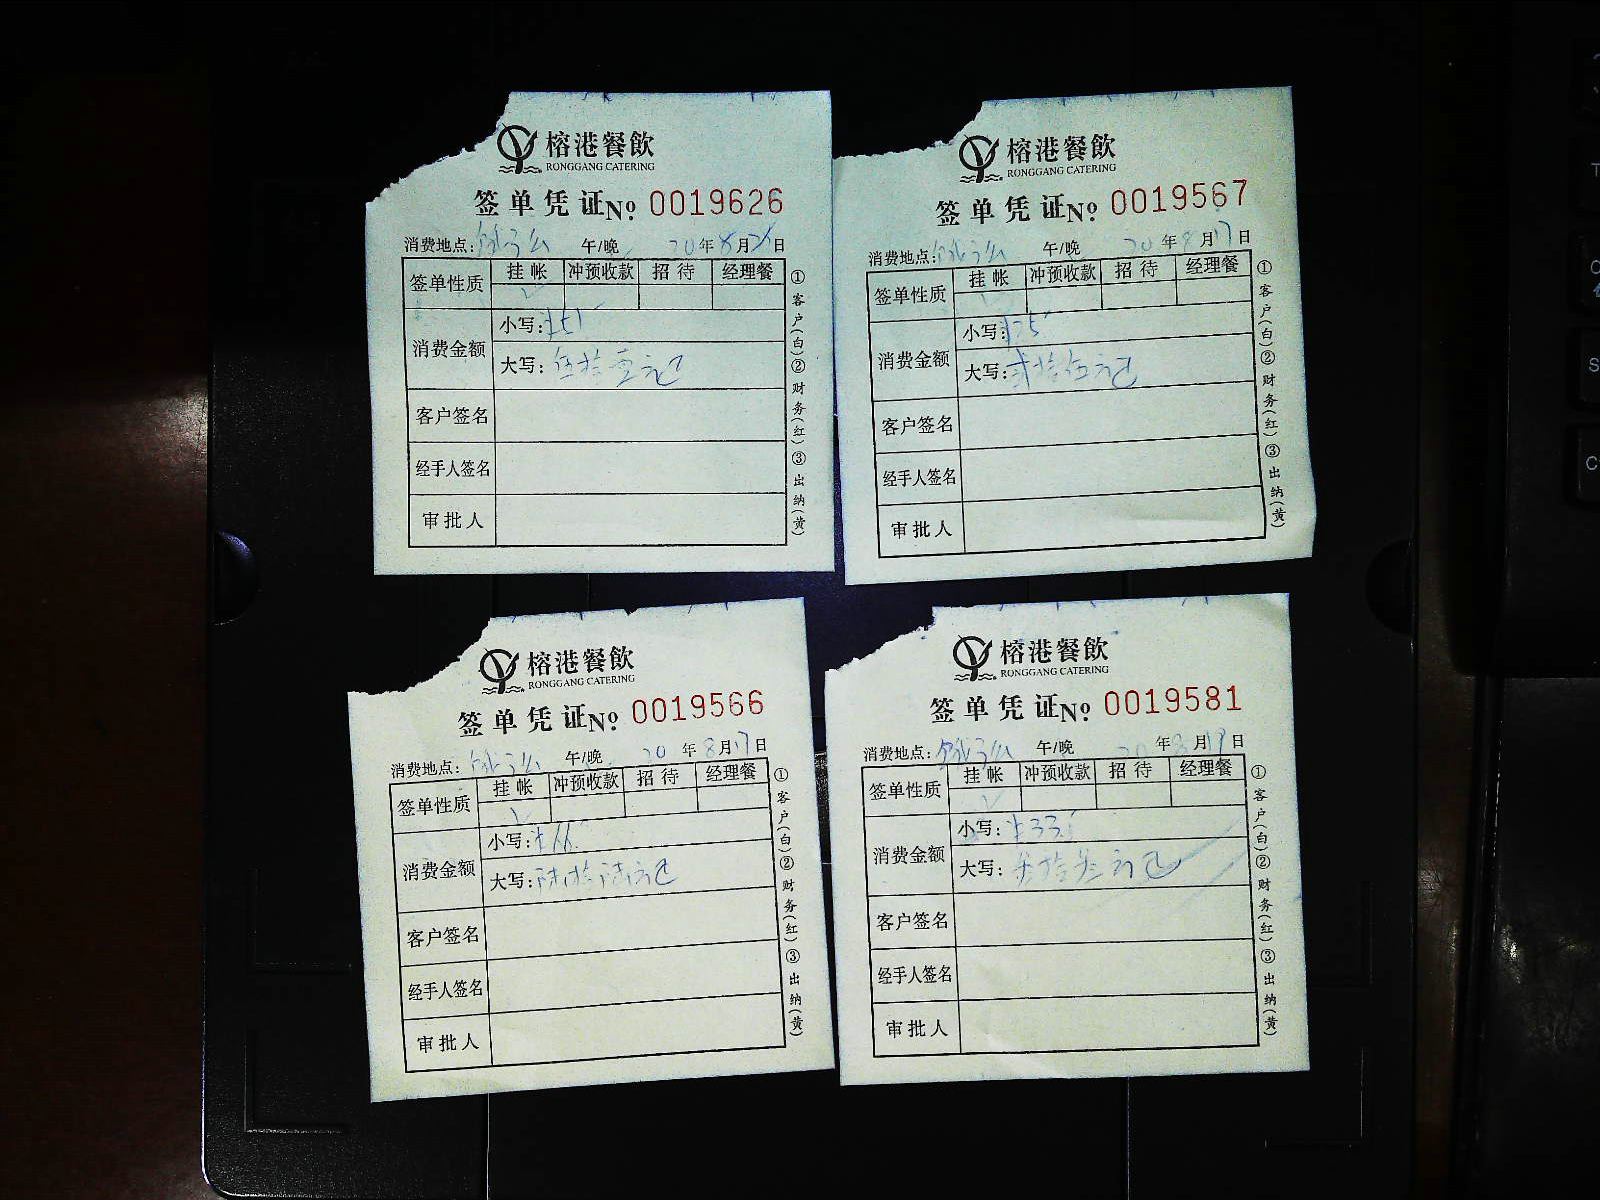 榕港餐飲
RONGGANG CATERING
签单凭证№ 0019626
消费地点: 午/晚 20年8月 日
签单性质 挂帐 冲预收款 招待 经理餐
消费金额
小写:¥51
大写:伍拾壹元
客户签名
经手人签名
审批人
①客户(白)②财务(红)③出纳(黄)
榕港餐飲
RONGGANG CATERING
签单凭证№ 0019567
消费地点: 午/晚 20年8月17日
签单性质 挂帐 冲预收款 招待 经理餐
消费金额
小写:¥25
大写:贰拾伍元
客户签名
经手人签名
审批人
①客户(白)②财务(红)③出纳(黄)
榕港餐飲
RONGGANG CATERING
签单凭证№ 0019566
消费地点: 午/晚 20年8月17日
签单性质 挂帐 冲预收款 招待 经理餐
消费金额
小写:¥66
大写:陆拾陆元
客户签名
经手人签名
审批人
①客户(白)②财务(红)③出纳(黄)
榕港餐飲
RONGGANG CATERING
签单凭证№ 0019581
消费地点: 午/晚 20年8月19日
签单性质 挂帐 冲预收款 招待 经理餐
消费金额
小写:¥33
大写:叁拾叁元
客户签名
经手人签名
审批人
①客户(白)②财务(红)③出纳(黄)